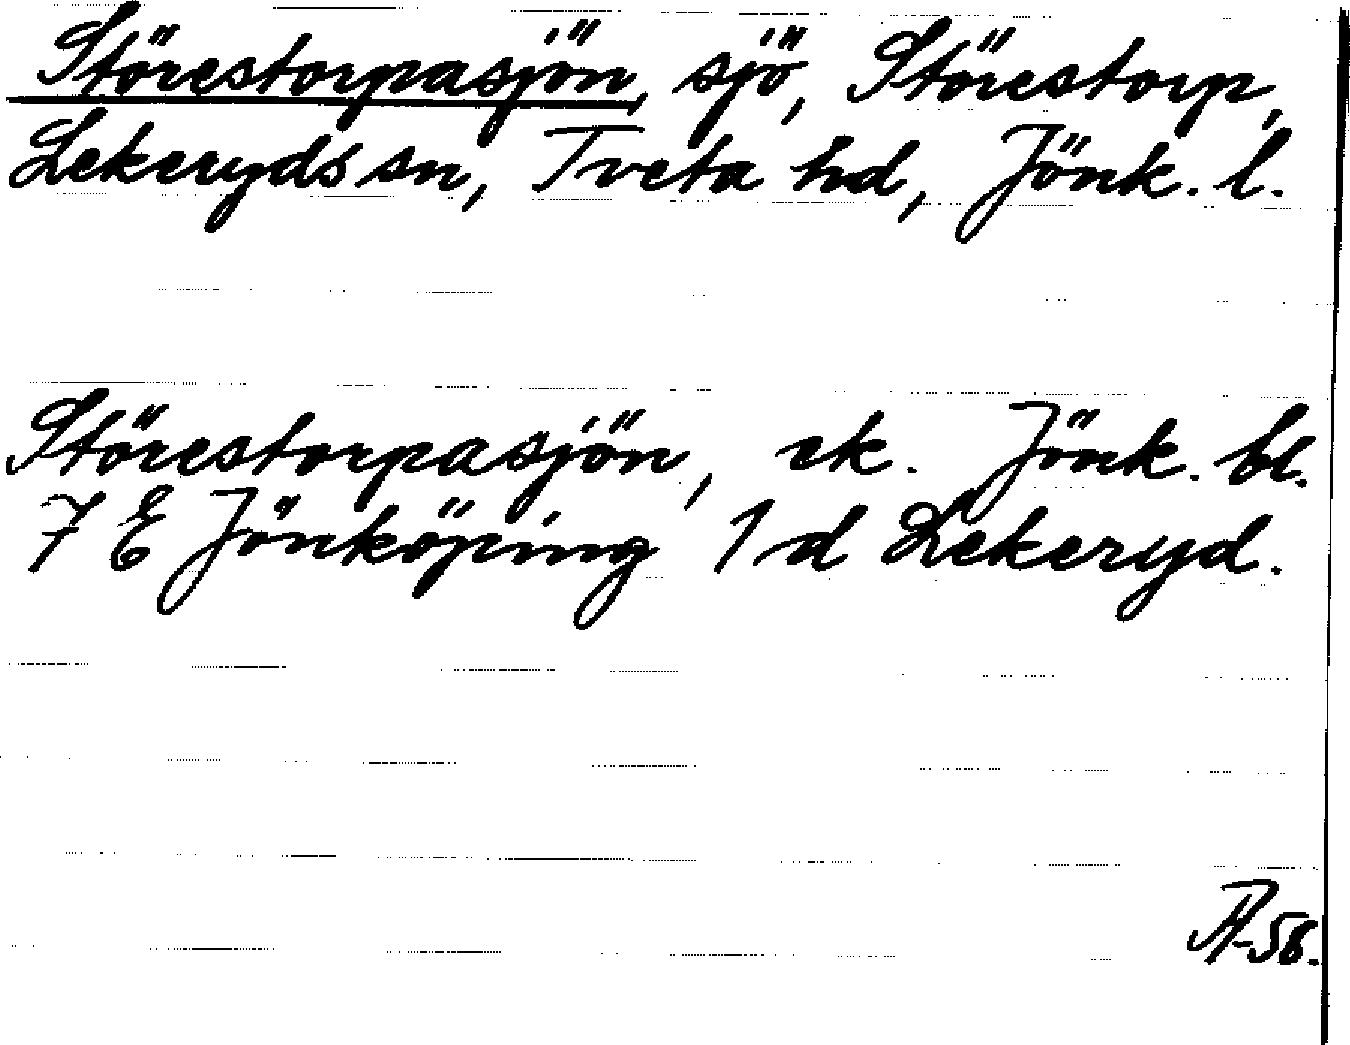 Störestorpasjön, sjö, Störestorp,
Lekeryds sn, Tveta hd, Jönk. l.
Störestorpasjön, ek. Jönk. bl.
7 E Jönköping 1 d Lekeryd.